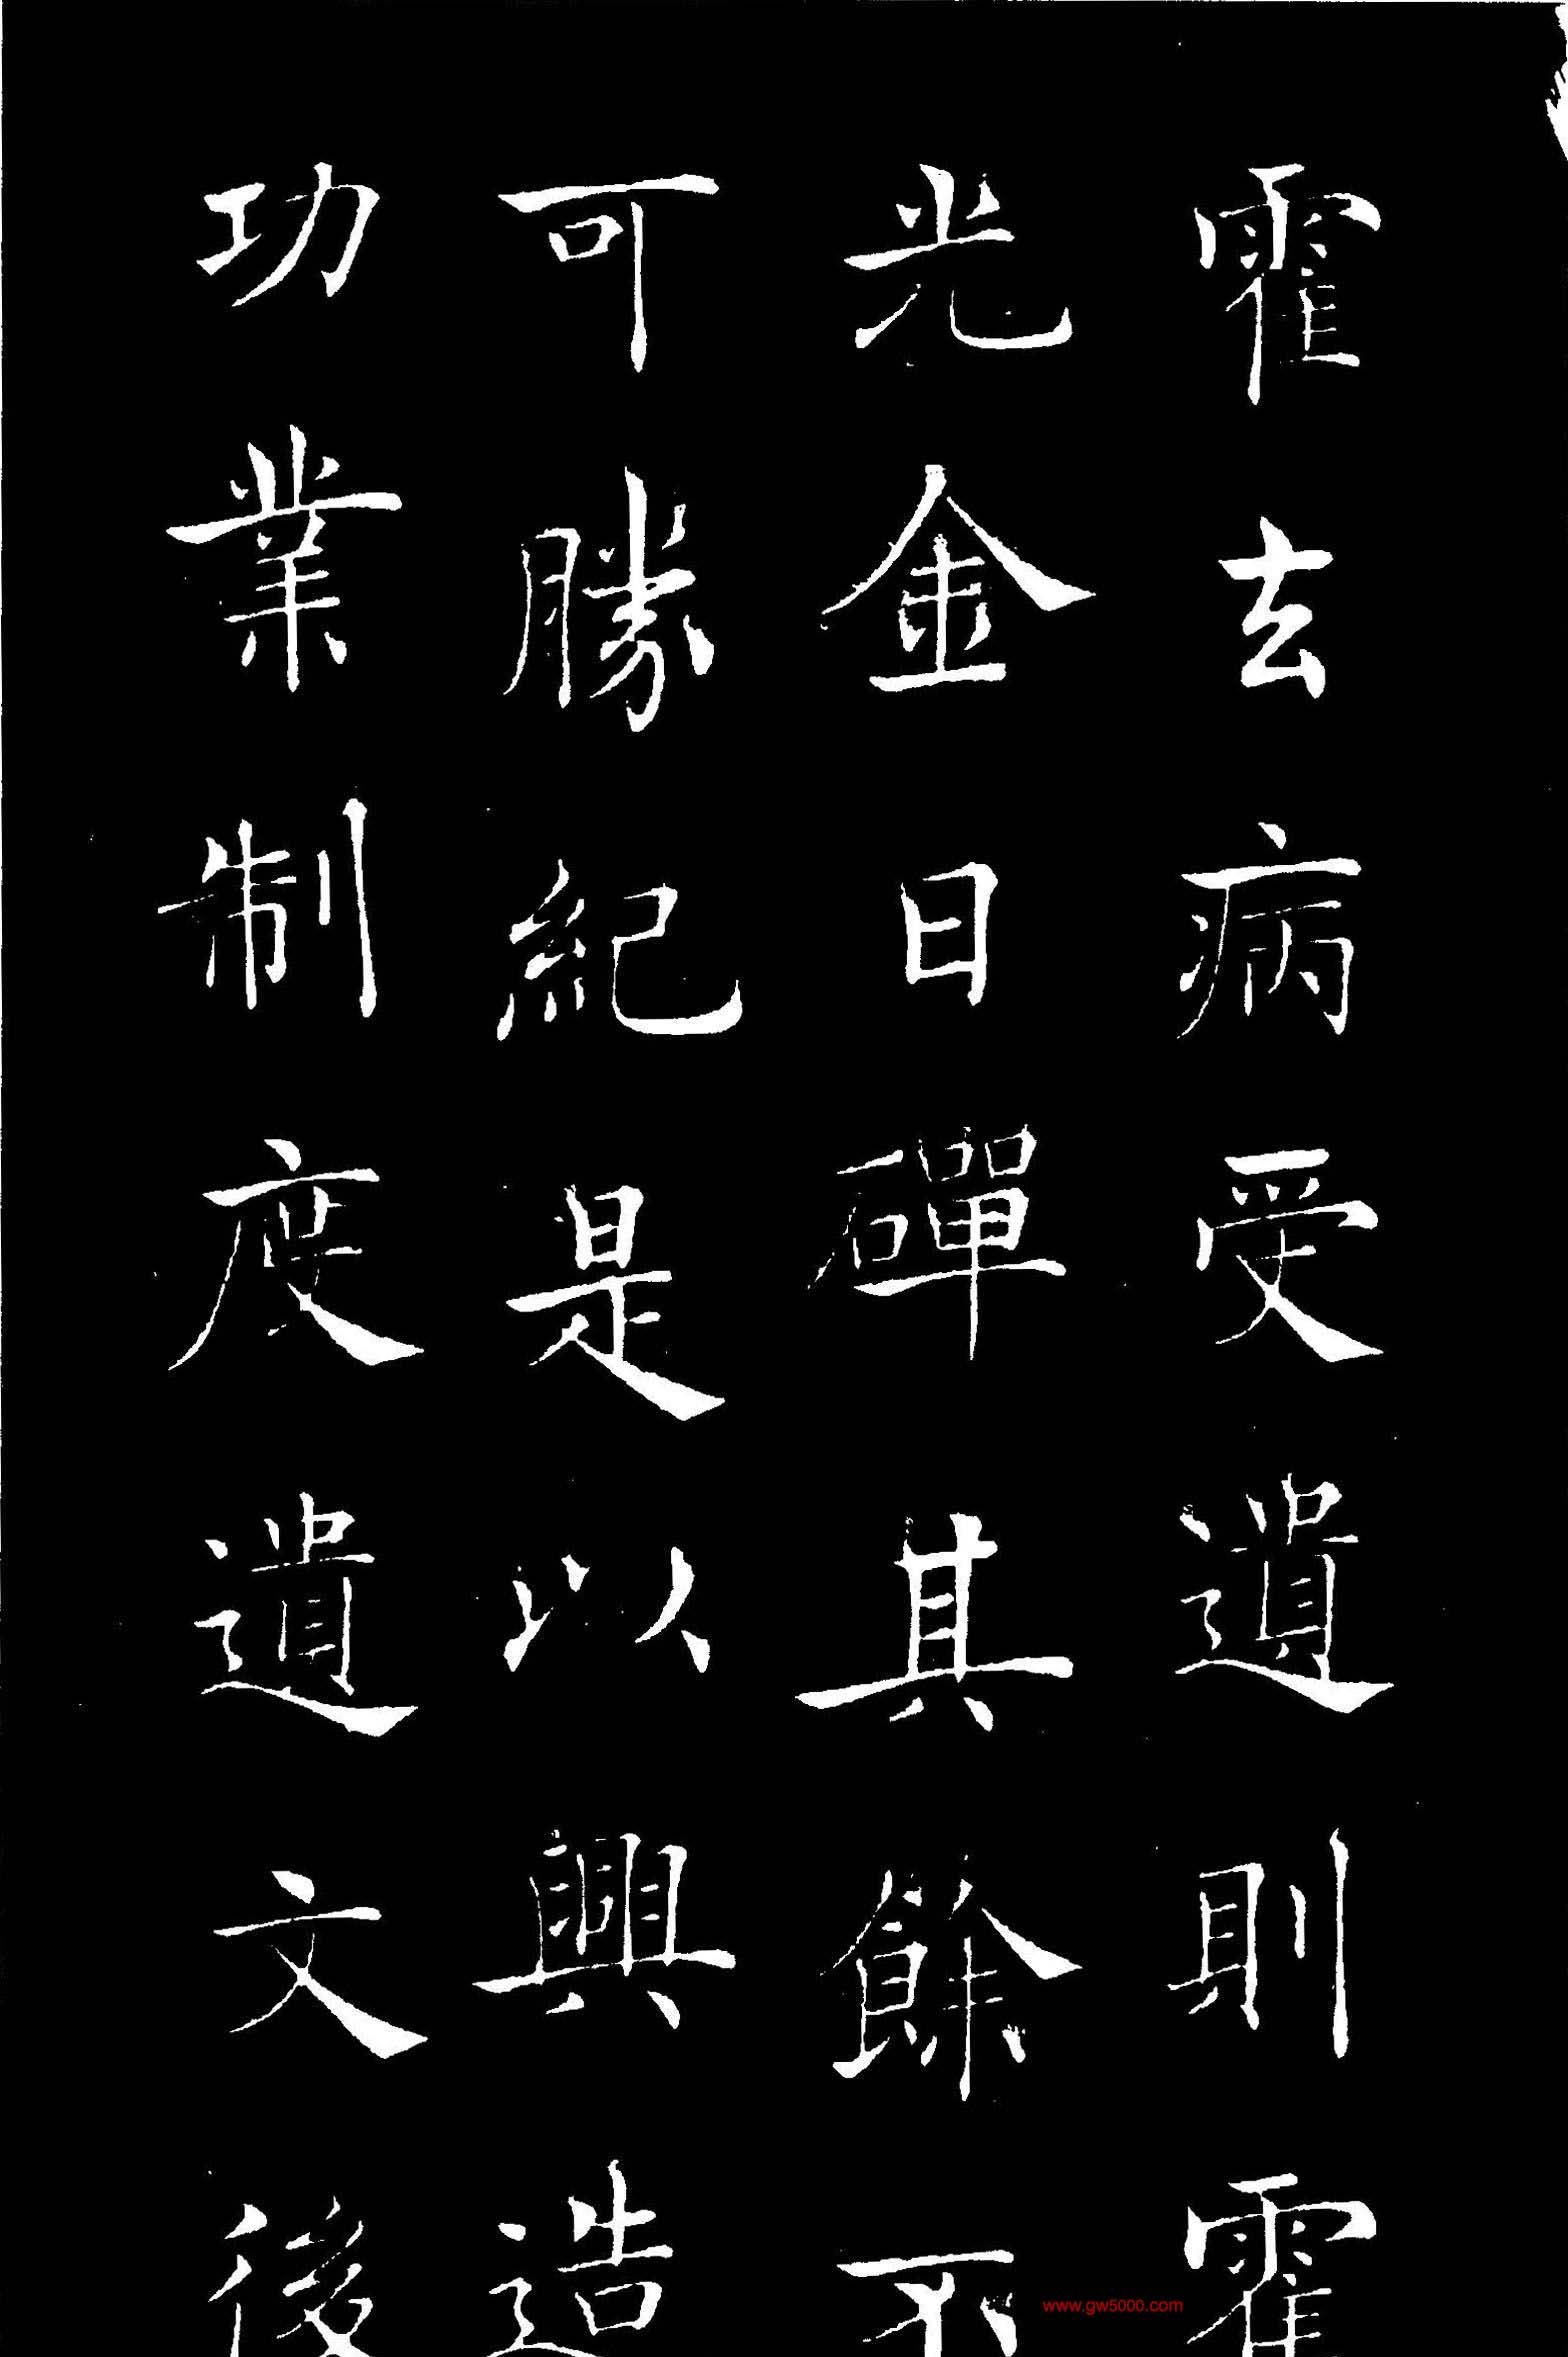 霍去病受遺則霍
光金日磾其餘不
可勝紀是以興造
功業制度遺文後
www.gw5000.com